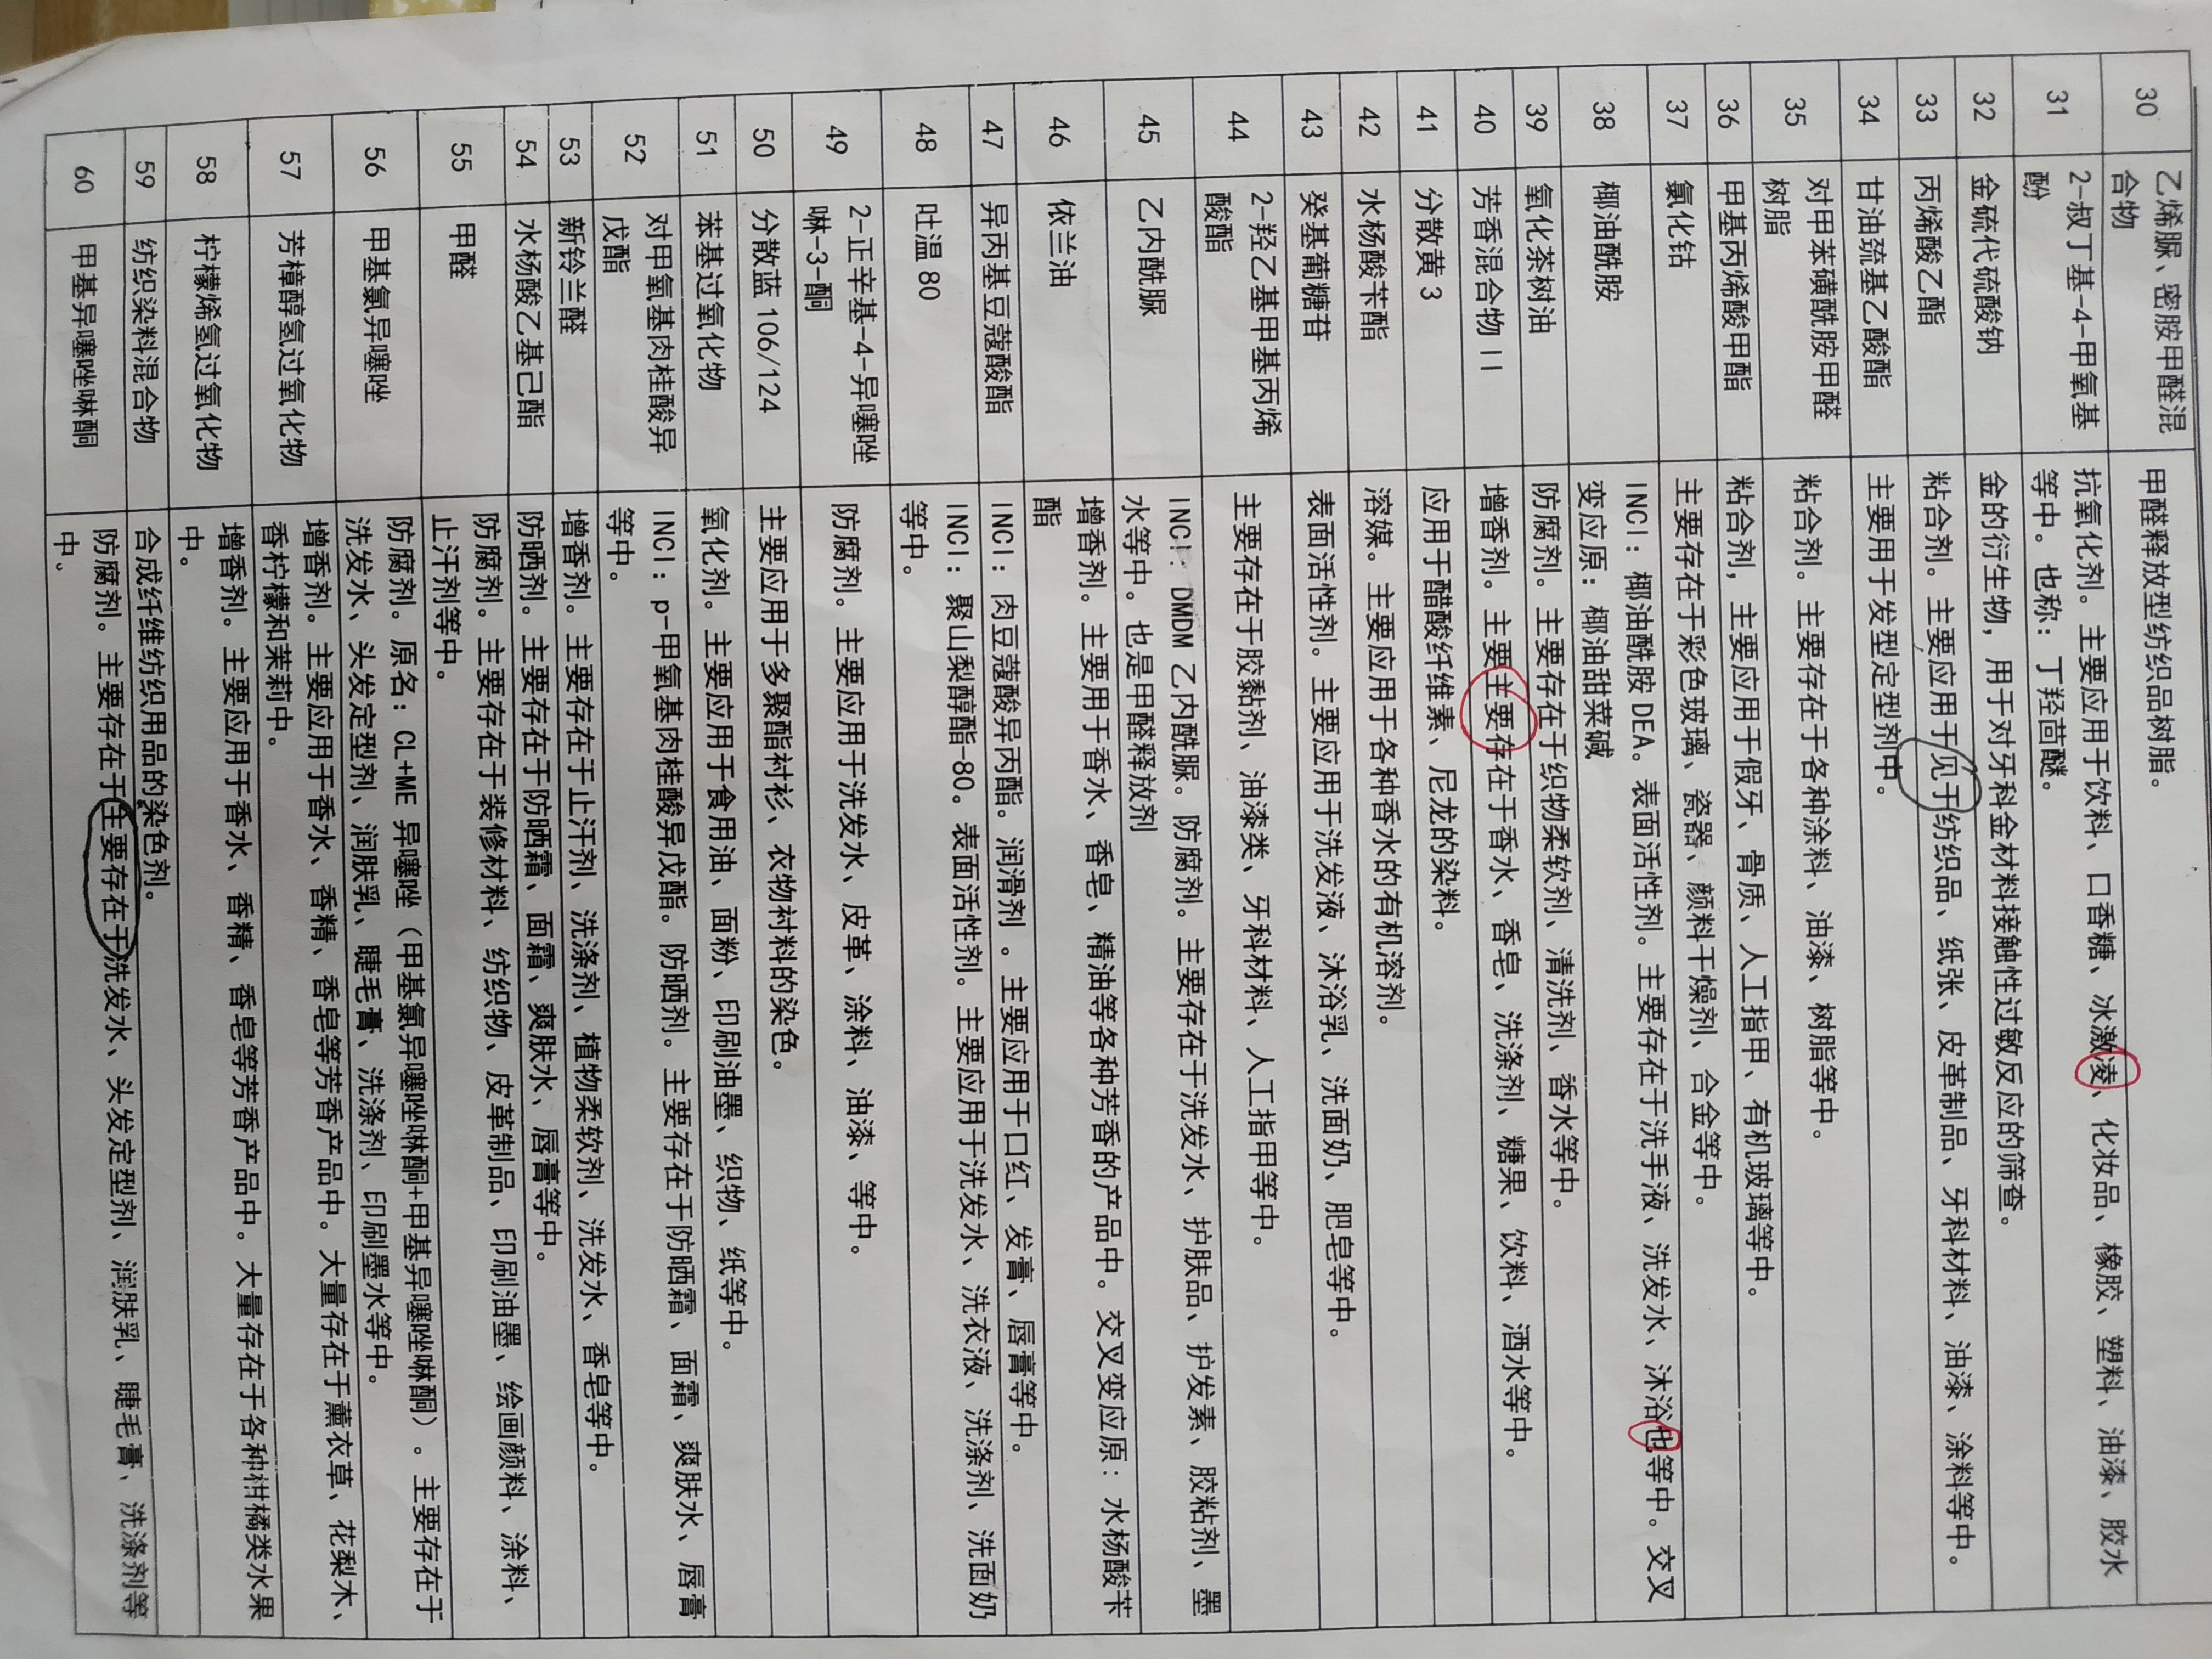 30 乙烯脲、密胺甲醛混
合物
甲醛释放型纺织品树脂。
31 2-叔丁基-4-甲氧基
酚
抗氧化剂。主要应用于饮料、口香糖、冰激凌、化妆品、橡胶、塑料、油漆、胶水
等中。也称：丁羟茴醚。
32 金硫代硫酸钠 金的衍生物，用于对牙科金材料接触性过敏反应的筛查。
33 丙烯酸乙酯 粘合剂。主要应用于见于纺织品、纸张、皮革制品、牙科材料、油漆、涂料等中。
34 甘油巯基乙酸酯 主要用于发型定型剂中。
35 对甲苯磺酰胺甲醛
树脂
粘合剂。主要存在于各种涂料、油漆、树脂等中。
36 甲基丙烯酸甲酯 粘合剂，主要应用于假牙、骨质、人工指甲、有机玻璃等中。
37 氯化钴 主要存在于彩色玻璃、瓷器、颜料干燥剂、合金等中。
38 椰油酰胺 INCI：椰油酰胺 DEA。表面活性剂。主要存在于洗手液、洗发水、沐浴也等中。交叉
变应原：椰油甜菜碱
39 氧化茶树油 防腐剂。主要存在于织物柔软剂、清洗剂、香水等中。
40 芳香混合物 II 增香剂。主要主要存在于香水、香皂、洗涤剂、糖果、饮料、酒水等中。
41 分散黄 3 应用于醋酸纤维素、尼龙的染料。
42 水杨酸苄酯 溶媒。主要应用于各种香水的有机溶剂。
43 癸基葡糖苷 表面活性剂。主要应用于洗发液、沐浴乳、洗面奶、肥皂等中。
44 2-羟乙基甲基丙烯
酸酯
主要存在于胶黏剂、油漆类、牙科材料、人工指甲等中。
45 乙内酰脲 INCI：DMDM 乙内酰脲。防腐剂。主要存在于洗发水、护肤品、护发素、胶粘剂、墨
水等中。也是甲醛释放剂
46 依兰油 增香剂。主要用于香水、香皂、精油等各种芳香的产品中。交叉变应原：水杨酸苄
酯
47 异丙基豆蔻酸酯 INCI：肉豆蔻酸异丙酯。润滑剂。主要应用于口红、发膏、唇膏等中。
48 吐温 80 INCI：聚山梨醇酯-80。表面活性剂。主要应用于洗发水、洗衣液、洗涤剂、洗面奶
等中。
49 2-正辛基-4-异噻唑
啉-3-酮
防腐剂。主要应用于洗发水、皮革、涂料、油漆、等中。
50 分散蓝 106/124 主要应用于多聚酯衬衫、衣物衬料的染色。
51 苯基过氧化物 氧化剂。主要应用于食用油、面粉、印刷油墨、织物、纸等中。
52 对甲氧基肉桂酸异
戊酯
INCI：p-甲氧基肉桂酸异戊酯。防晒剂。主要存在于防晒霜、面霜、爽肤水、唇膏
等中。
53 新铃兰醛 增香剂。主要存在于止汗剂、洗涤剂、植物柔软剂、洗发水、香皂等中。
54 水杨酸乙基己酯 防晒剂。主要存在于防晒霜、面霜、爽肤水、唇膏等中。
55 甲醛 防腐剂。主要存在于装修材料、纺织物、皮革制品、印刷油墨、绘画颜料、涂料、
止汗剂等中。
56 甲基氯异噻唑 防腐剂。原名：CL+ME 异噻唑（甲基氯异噻唑啉酮+甲基异噻唑啉酮）。主要存在于
洗发水、头发定型剂、润肤乳、睫毛膏、洗涤剂、印刷墨水等中。
57 芳樟醇氢过氧化物 增香剂。主要应用于香水、香精、香皂等芳香产品中。大量存在于薰衣草、花梨木、
香柠檬和茉莉中。
58 柠檬烯氢过氧化物 增香剂。主要应用于香水、香精、香皂等芳香产品中。大量存在于各种柑橘类水果
中。
59 纺织染料混合物 合成纤维纺织用品的染色剂。
60 甲基异噻唑啉酮 防腐剂。主要存在于主要存在于洗发水、头发定型剂、润肤乳、睫毛膏、洗涤剂等
中。